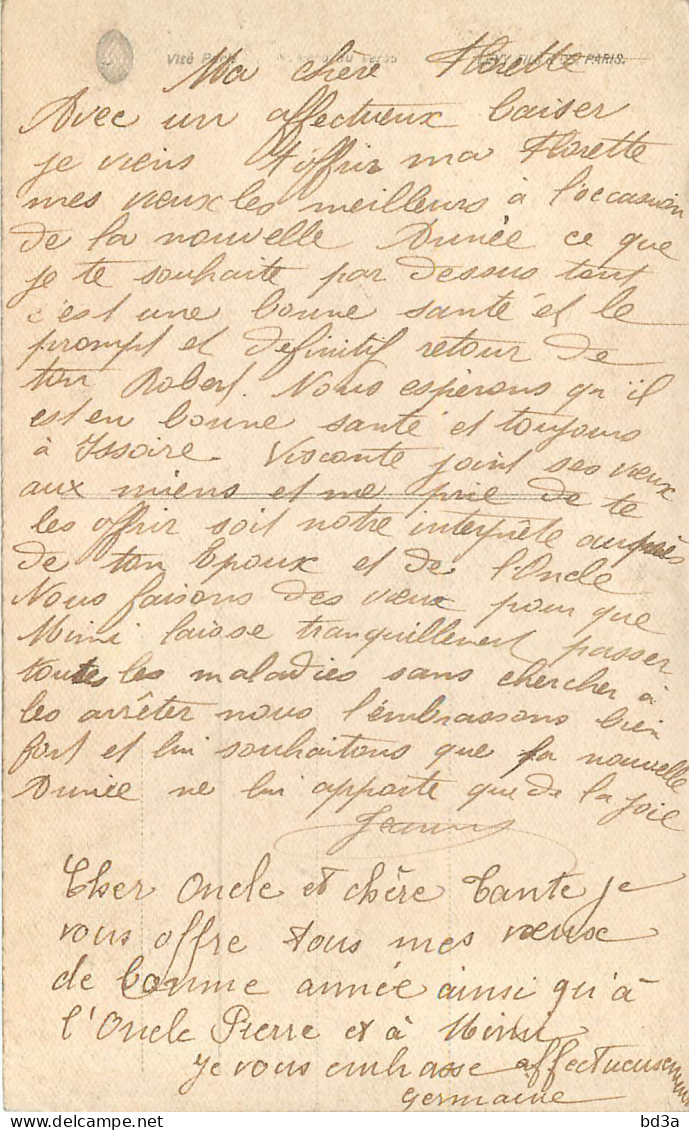 Visé Paris
PARIS.
Ma chère Florette
Avec un affectueux baiser
je viens t'offrir ma Florette
mes vœux les meilleurs à l'occasion
de la nouvelle Année ce que
je te souhaite par dessus tout
c'est une bonne santé et le
prompt et définitif retour de
ton Robert. Nous espérons qu'il
est en bonne santé et toujours
à Issoire. Visconte joint ses vœux
aux miens et me prie de te
les offrir soit notre interprète auprès
de ton Epoux et de l'Oncle
Nous faisons des vœux pour que
Mimi laisse tranquillement passer
toutes les maladies sans chercher à
les arrêter nous l'embrassons bien
fort et lui souhaitons que la nouvelle
Année ne lui apporte que de la joie
Cher Oncle et chère Tante je
vous offre tous mes vœux
de bonne année ainsi qu'à
l'Oncle Pierre et à Mimi
Je vous embrasse affectueusement
Germaine
bd3a